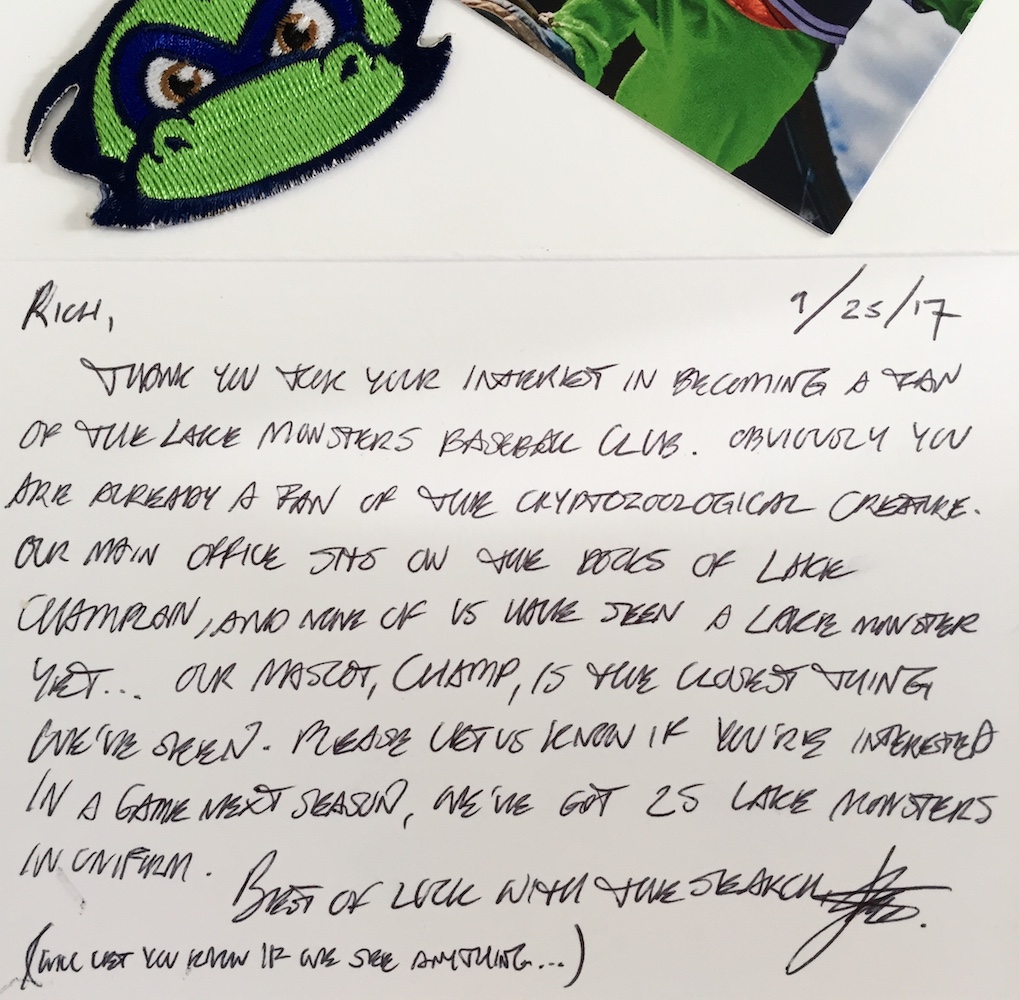 RICH, 9/25/17
THANK YOU FOR YOUR INTEREST IN BECOMING A FAN
OF THE LAKE MONSTERS BASEBALL CLUB. OBVIOUSLY YOU
ARE ALREADY A FAN OF THE CRYPTOZOOLOGICAL CREATURE.
OUR MAIN OFFICE SITS ON THE DOCKS OF LAKE
CHAMPLAIN, AND NONE OF US HAVE SEEN A LAKE MONSTER
YET... OUR MASCOT, CHAMP, IS THE CLOSEST THING
WE'VE SEEN. PLEASE LET US KNOW IF YOU'RE INTERESTED
IN A GAME NEXT SEASON, WE'VE GOT 25 LAKE MONSTERS
IN UNIFORM.
BEST OF LUCK WITH THE SEARCH,
(WILL LET YOU KNOW IF WE SEE ANYTHING...)